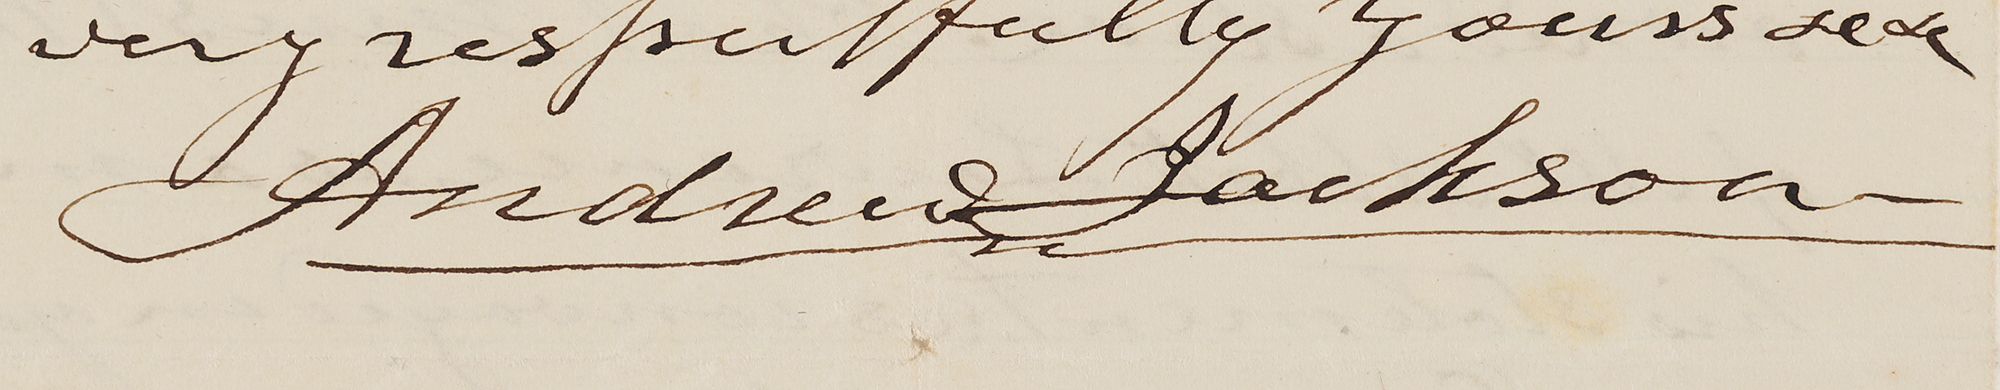 very respectfully yours &c &c
Andrew Jackson